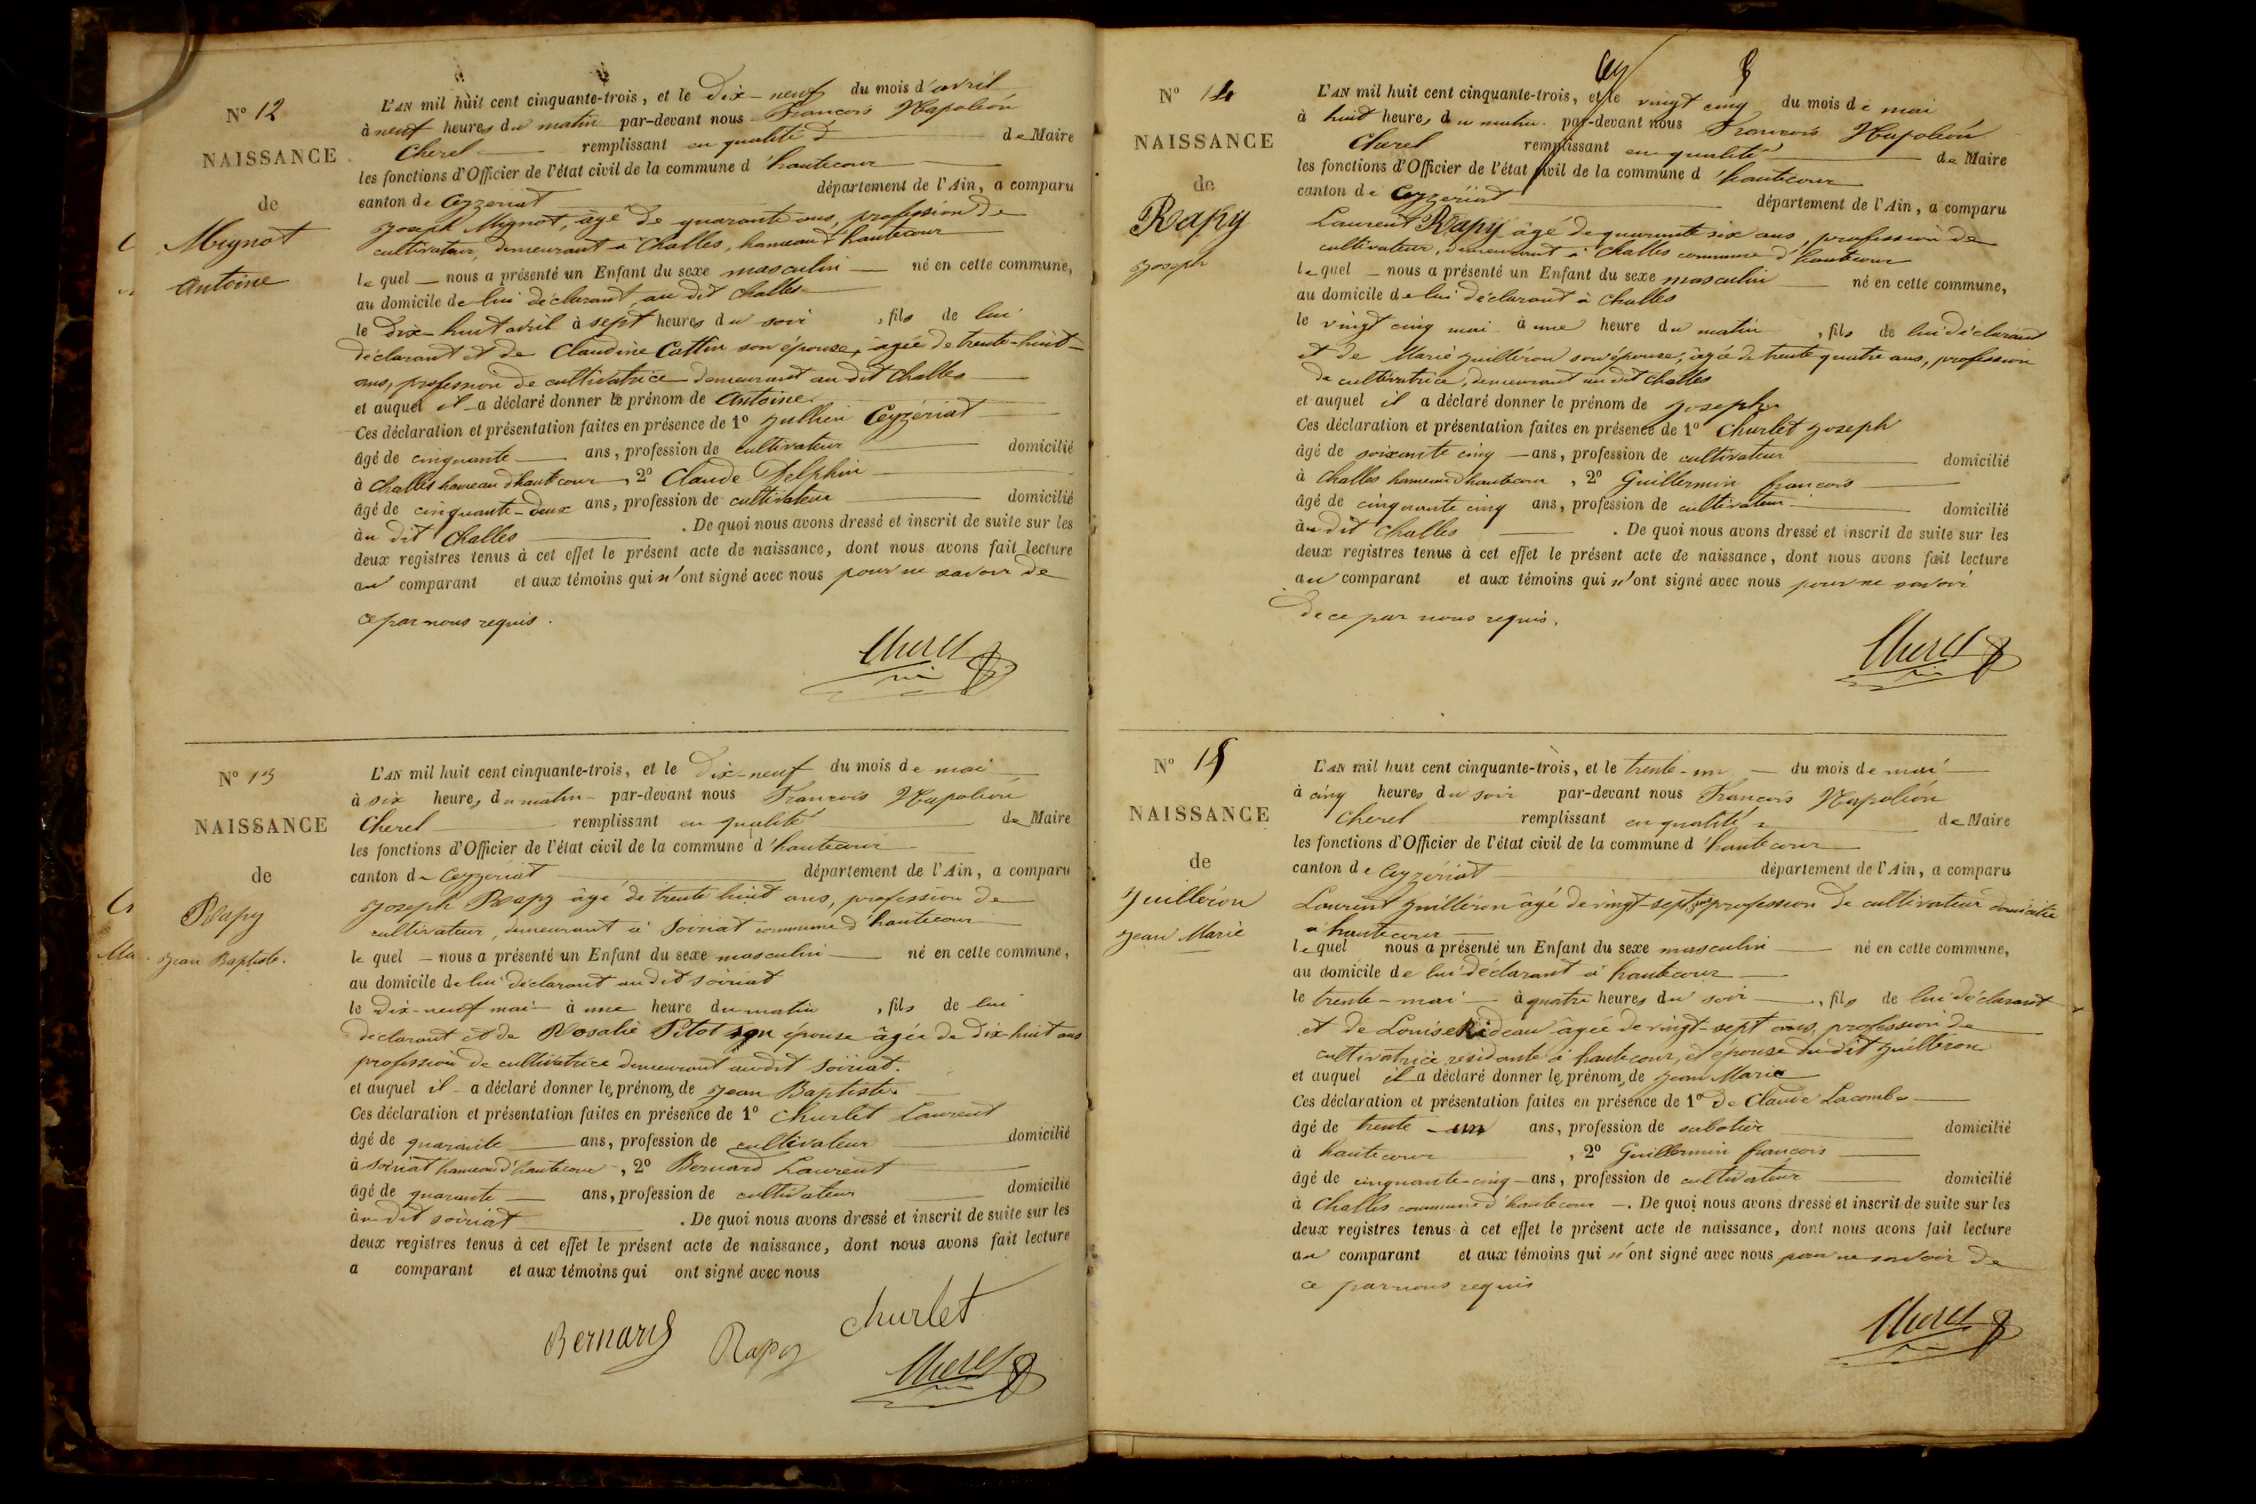 Nº 12
NAISSANCE
de
Mignot
Antoine
L'AN mil huit cent cinquante-trois, et le Dix-neuf du mois d'avril
à neuf heures du matin par-devant nous François Napoléon
Cherel remplissant en qualité de Maire
les fonctions d'Officier de l'état civil de la commune d'hautecour
canton de Ceyzeriat département de l'Ain, a comparu
Joseph Mignot, âgé de quarante ans, profession de
cultivateur, demeurant à Challes, hameau d'hautecour
lequel nous a présenté un Enfant du sexe masculin né en cette commune,
au domicile de lui déclarant, au dit Challes
le Dix-huit avril à sept heures du soir, fils de lui
déclarant et de Claudine Cattin son épouse, âgée de trente-huit
ans, profession de cultivatrice demeurant au dit Challes
et auquel il a déclaré donner le prénom de Antoine
Ces déclaration et présentation faites en présence de 1º Jullien Ceyzériat
âgé de cinquante ans, profession de cultivateur domicilié
à Challes hameau d'hautecour, 2º Claude Delphin
âgé de cinquante-deux ans, profession de cultivateur domicilié
au dit Challes. De quoi nous avons dressé et inscrit de suite sur les
deux registres tenus à cet effet le présent acte de naissance, dont nous avons fait lecture
au comparant et aux témoins qui n'ont signé avec nous pour ne savoir de
ce par nous requis.
Cherel
Nº 13
NAISSANCE
de
Rapy
Jean Baptiste.
L'AN mil huit cent cinquante-trois, et le Dix-neuf du mois de mai
à six heures du matin par-devant nous François Napoléon
Cherel remplissant en qualité de Maire
les fonctions d'Officier de l'état civil de la commune d'hautecour
canton de Ceyzeriat département de l'Ain, a comparu
Joseph Rapy âgé de trente huit ans, profession de
cultivateur, demeurant à Soiriat commune d'hautecour
lequel nous a présenté un Enfant du sexe masculin né en cette commune,
au domicile de lui déclarant au dit Soiriat
le Dix-neuf mai à une heure du matin, fils de lui
déclarant et de Rosalie Pitot son épouse âgée de dix-huit ans
profession de cultivatrice demeurant audit Soiriat.
et auquel il a déclaré donner les prénoms de Jean Baptiste
Ces déclaration et présentation faites en présence de 1º Churlet Laurent
âgé de quarante ans, profession de cultivateur domicilié
à Soiriat hameau d'hautecour, 2º Bernard Laurent
âgé de quarante ans, profession de cultivateur domicilié
au dit soiriat. De quoi nous avons dressé et inscrit de suite sur les
deux registres tenus à cet effet le présent acte de naissance, dont nous avons fait lecture
a comparant et aux témoins qui ont signé avec nous
Bernard Rapy Churlet
Cherel
Nº 14
NAISSANCE
de
Rapy
Joseph
L'AN mil huit cent cinquante-trois, et le vingt cinq du mois de mai
à huit heures du matin par-devant nous François Napoléon
Cherel remplissant en qualité de Maire
les fonctions d'Officier de l'état civil de la commune d'hautecour
canton de Ceyzériat département de l'Ain, a comparu
Laurent Rapy âgé de quarante six ans, profession de
cultivateur, demeurant à Challes commune d'hautecour
lequel nous a présenté un Enfant du sexe masculin né en cette commune,
au domicile de lui déclarant à Challes
le vingt cinq mai à une heure du matin, fils de lui déclarant
et de Marie Guilléron son épouse, âgée de trente quatre ans, profession
de cultivatrice, demeurant au dit Challes
et auquel il a déclaré donner le prénom de Joseph
Ces déclaration et présentation faites en présence de 1º Churlet Joseph
âgé de soixante cinq ans, profession de cultivateur domicilié
à Challes hameau d'hautecour, 2º Guillermin françois
âgé de cinquante cinq ans, profession de cultivateur domicilié
au dit Challes. De quoi nous avons dressé et inscrit de suite sur les
deux registres tenus à cet effet le présent acte de naissance, dont nous avons fait lecture
au comparant et aux témoins qui n'ont signé avec nous pour ne savoir
de ce par nous requis.
Cherel
Nº 15
NAISSANCE
de
Guilléron
Jean Marie
L'AN mil huit cent cinquante-trois, et le trente-un du mois de mai
à cinq heures du soir par-devant nous François Napoléon
Cherel remplissant en qualité de Maire
les fonctions d'Officier de l'état civil de la commune d'hautecour
canton de Ceyzériat département de l'Ain, a comparu
Laurent Guilléron âgé de vingt-sept ans profession de cultivateur domicilié
à hautecour
lequel nous a présenté un Enfant du sexe masculin né en cette commune,
au domicile de lui déclarant à hautecour
le trente-mai à quatre heures du soir, fils de lui déclarant
et de Louise Rideau âgée de vingt-sept ans, profession de
cultivatrice résidante à hautecour, et épouse du dit Guilléron
et auquel il a déclaré donner les prénoms de Jean Marie
Ces déclaration et présentation faites en présence de 1º de Claude Lacombe
âgé de trente-un ans, profession de sabotier domicilié
à hautecour, 2º Guillermin françois
âgé de cinquante-cinq ans, profession de cultivateur domicilié
à Challes commune d'hautecour. De quoi nous avons dressé et inscrit de suite sur les
deux registres tenus à cet effet le présent acte de naissance, dont nous avons fait lecture
au comparant et aux témoins qui n'ont signé avec nous pour ne savoir de
ce par nous requis
Cherel